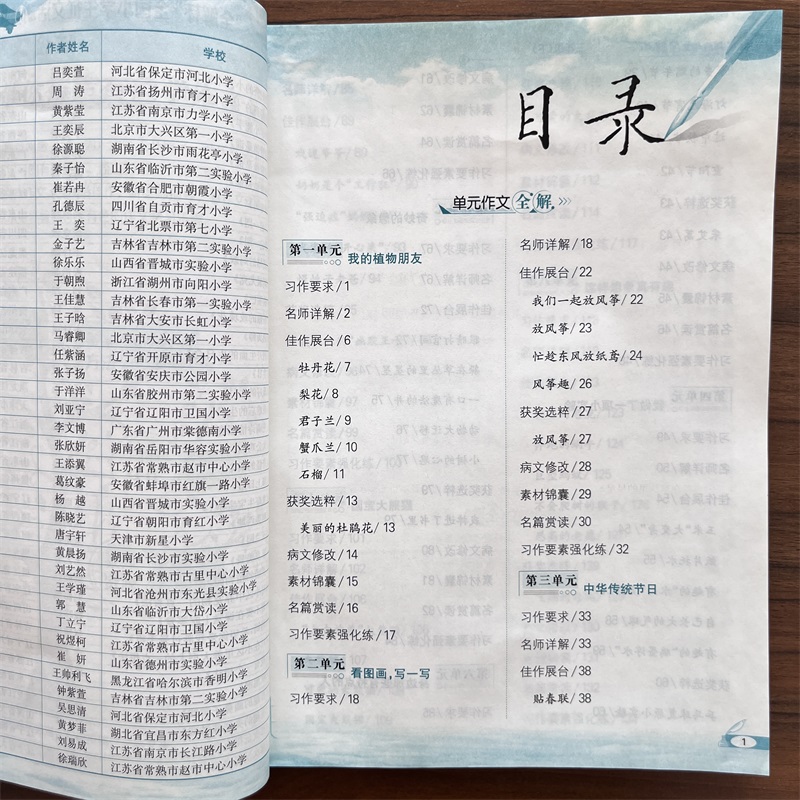 作者姓名 学校
吕奕萱 河北省保定市河北小学
周涛 江苏省扬州市育才小学
黄紫莹 江苏省南京市力学小学
王奕辰 北京市大兴区第一小学
徐源聪 湖南省长沙市雨花亭小学
秦子怡 山东省临沂市第二实验小学
崔若冉 安徽省合肥市朝霞小学
孔德辰 四川省自贡市育才小学
王奕 辽宁省北票市第七小学
金子艺 吉林省吉林市第二实验小学
徐乐乐 山西省晋城市实验小学
于朝煦 浙江省湖州市向阳小学
王佳慧 吉林省长春市第一实验小学
王子晗 吉林省大安市长虹小学
马睿卿 北京市大兴区第一小学
任紫涵 辽宁省开原市育才小学
张子扬 安徽省安庆市公园小学
于洋洋 山东省胶州市第二实验小学
刘亚宁 辽宁省辽阳市卫国小学
李文博 广东省广州市棠德南小学
张欣妍 湖南省岳阳市华容实验小学
王添翼 江苏省常熟市赵市中心小学
葛纹豪 安徽省蚌埠市红旗一路小学
杨越 山西省晋城市实验小学
陈晓艺 辽宁省朝阳市育红小学
唐宇轩 天津市新星小学
黄晨扬 湖南省长沙市实验小学
刘艺然 江苏省常熟市古里中心小学
王学瑾 河北省沧州市东光县实验小学
郭慧 山东省临沂市大岱小学
丁立宁 辽宁省辽阳市卫国小学
祝煜柯 江苏省常熟市古里中心小学
崔妍 山东省德州市实验小学
王帅利飞 黑龙江省哈尔滨市香明小学
钟紫萱 吉林省吉林市第二实验小学
吴思清 河北省保定市河北小学
黄梦菲 湖北省宜昌市东方红小学
刘易成 江苏省南京市长江路小学
徐瑞欣 江苏省常熟市赵市中心小学
目录
单元作文全解
第一单元 我的植物朋友
习作要求/1
名师详解/2
佳作展台/6
牡丹花/7
梨花/8
君子兰/9
蟹爪兰/10
石榴/11
获奖选粹/13
美丽的杜鹃花/13
病文修改/14
素材锦囊/15
名篇赏读/16
习作要素强化练/17
第二单元 看图画，写一写
习作要求/18
名师详解/18
佳作展台/22
我们一起放风筝/22
放风筝/23
忙趁东风放纸鸢/24
风筝趣/26
获奖选粹/27
放风筝/27
病文修改/28
素材锦囊/29
名篇赏读/30
习作要素强化练/32
第三单元 中华传统节日
习作要求/33
名师详解/33
佳作展台/38
贴春联/38
1